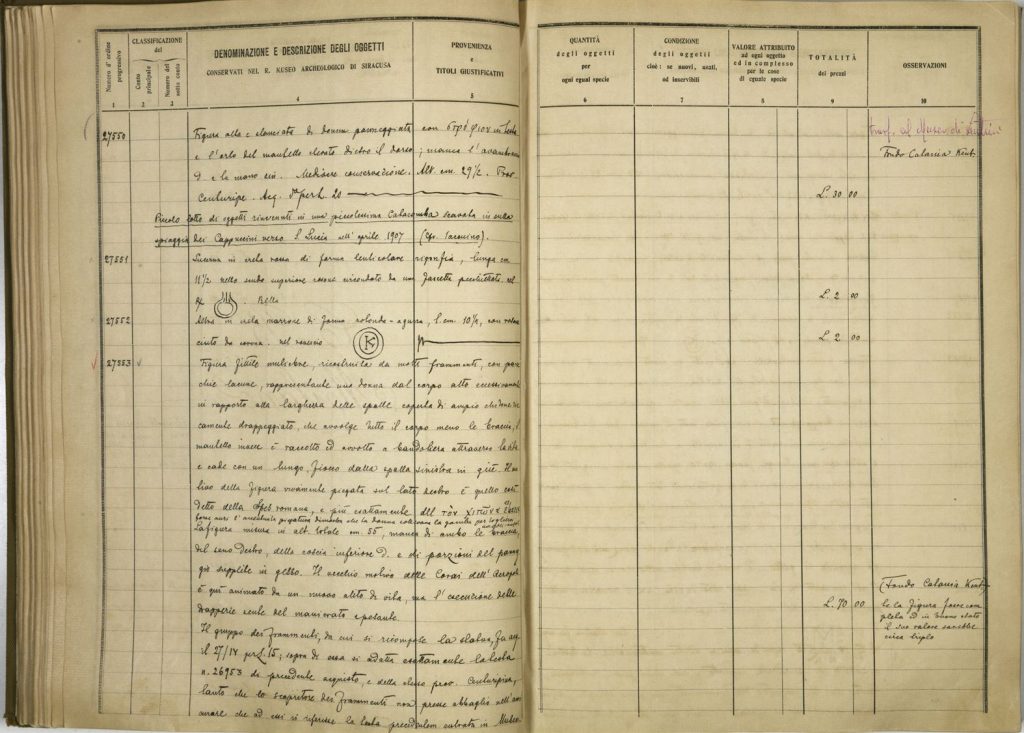 Numero d'ordine progressivo
CLASSIFICAZIONE del
Conto principale
Numero del sotto conto
DENOMINAZIONE E DESCRIZIONE DEGLI OGGETTI
CONSERVATI NEL R. MUSEO ARCHEOLOGICO DI SIRACUSA
PROVENIENZA
e
TITOLI GIUSTIFICATIVI
QUANTITÀ
degli oggetti
per
ogni egual specie
CONDIZIONE
degli oggetti
cioè: se nuovi, usati,
od inservibili
VALORE ATTRIBUITO
ad ogni oggetto
ed in complesso
per le cose
di eguale specie
TOTALITÀ
dei prezzi
OSSERVAZIONI
1 2 3 4 5 6 7 8 9 10
27550 Figura alta e slanciata di donna panneggiata con in testa
e l'orlo del mantello elevato dietro il dorso; manca l'avambraccio
d. e la mano sin. Mediocre conservazione. Alt. cm. 29 1/2. Prov.
Centuripe. Acq. per L. 20
trasf. al Museo di Lentini
Fondo Catania Kent
L. 30 00
Piccolo lotto di oggetti rinvenuti in una piccolissima Catacomba scavata in sulla
spiaggia dei Cappuccini verso S. Lucia nell'aprile 1907 (Cfr. taccuino).
27551 Lucerna in creta rossa di forma lenticolare rigonfia, lunga cm
11 1/2 nello scudo superiore rosone circondato da una fascetta nel
Bella
L. 2 00
27552 Altra in creta marrone di forma rotondo-aguzza, l. cm. 10 1/2, con
cinto da corona. nel rovescio K
L. 2 00
27553 Figura fittile muliebre, ricostruita da molti frammenti, con parec
chie lacune, rappresentante una donna dal corpo alto eccessivamente
in rapporto alla larghezza delle spalle coperta di ampio chitone
camente drappeggiato, che avvolge tutto il corpo meno le braccia; il
mantello invece è raccolto ed avvolto a bandoliera attraverso la vita
e cade con un lungo fiocco dalla spalla sinistra in giù. Il mo
tivo della figura vivamente piegata sul lato destro è quello così
detto della Spes romana, e più esattamente del τὸν χιτῶνα
La figura misura in alt. totale cm. 55, manca di ambo le braccia,
del seno destro, della coscia inferiore d. e di porzioni del panneg
gio supplite in gesso. Il vecchio motivo delle Corai dell'Acropoli
è qui animato da un nuovo alito di vita, ma l'esecuzione delle
drapperie sente del manierato e pesante.
(Fondo Catania Kent)
L. 70 00 Se la figura fosse com
pleta ed in buono stato
il suo valore sarebbe
circa triplo
Il gruppo dei frammenti, da cui si ricompose la statua, fu acq.
il 27/14 per L. 15; sopra di essa si adatta esattamente la testa
n. 26953 di precedente acquisto, e della stessa prov. Centuripina,
tanto che lo scopritore dei frammenti non prese abbaglio nell'assi
curare che ad essi si riferisse la testa precedentem. entrata in Museo